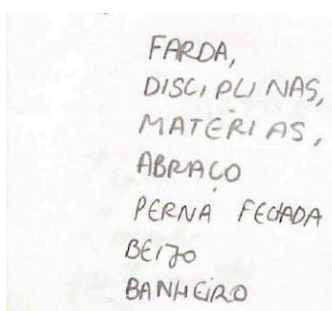 FARDA,
DISCIPLINAS,
MATERIAS,
ABRAÇO
PERNA FECHADA
BEIJO
BANHEIRO